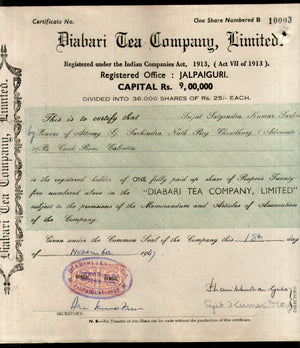 Certificate No.
One Share Numbered B 10003
Diabari Tea Company, Limited.
Registered under the Indian Companies Act, 1913, (Act VII of 1913).
Registered Office : JALPAIGURI.
CAPITAL Rs. 9,00,000
DIVIDED INTO 36,000 SHARES OF Rs. 25/- EACH.
This is to certify that Sujit Satyendra Kumar
by Powers of Attorney G. Sachindra Nath Roy Choudhury (Advocate
Creek Row, Calcutta.
is the registered holder of ONE fully paid up share of Rupees Twenty
five numbered above in the "DIABARI TEA COMPANY, LIMITED"
subject to the provisions of the Memorandum and Articles of Association
of the Company.
Given under the Common Seal of the Company this
day
of November 1947.
DIABARI TEA
JALPAIGURI
SECRETARY.
DIRECTORS
N. B.—No Transfer of this Share can be made without production of this Certificate.
Diabari Tea Company, Limited.